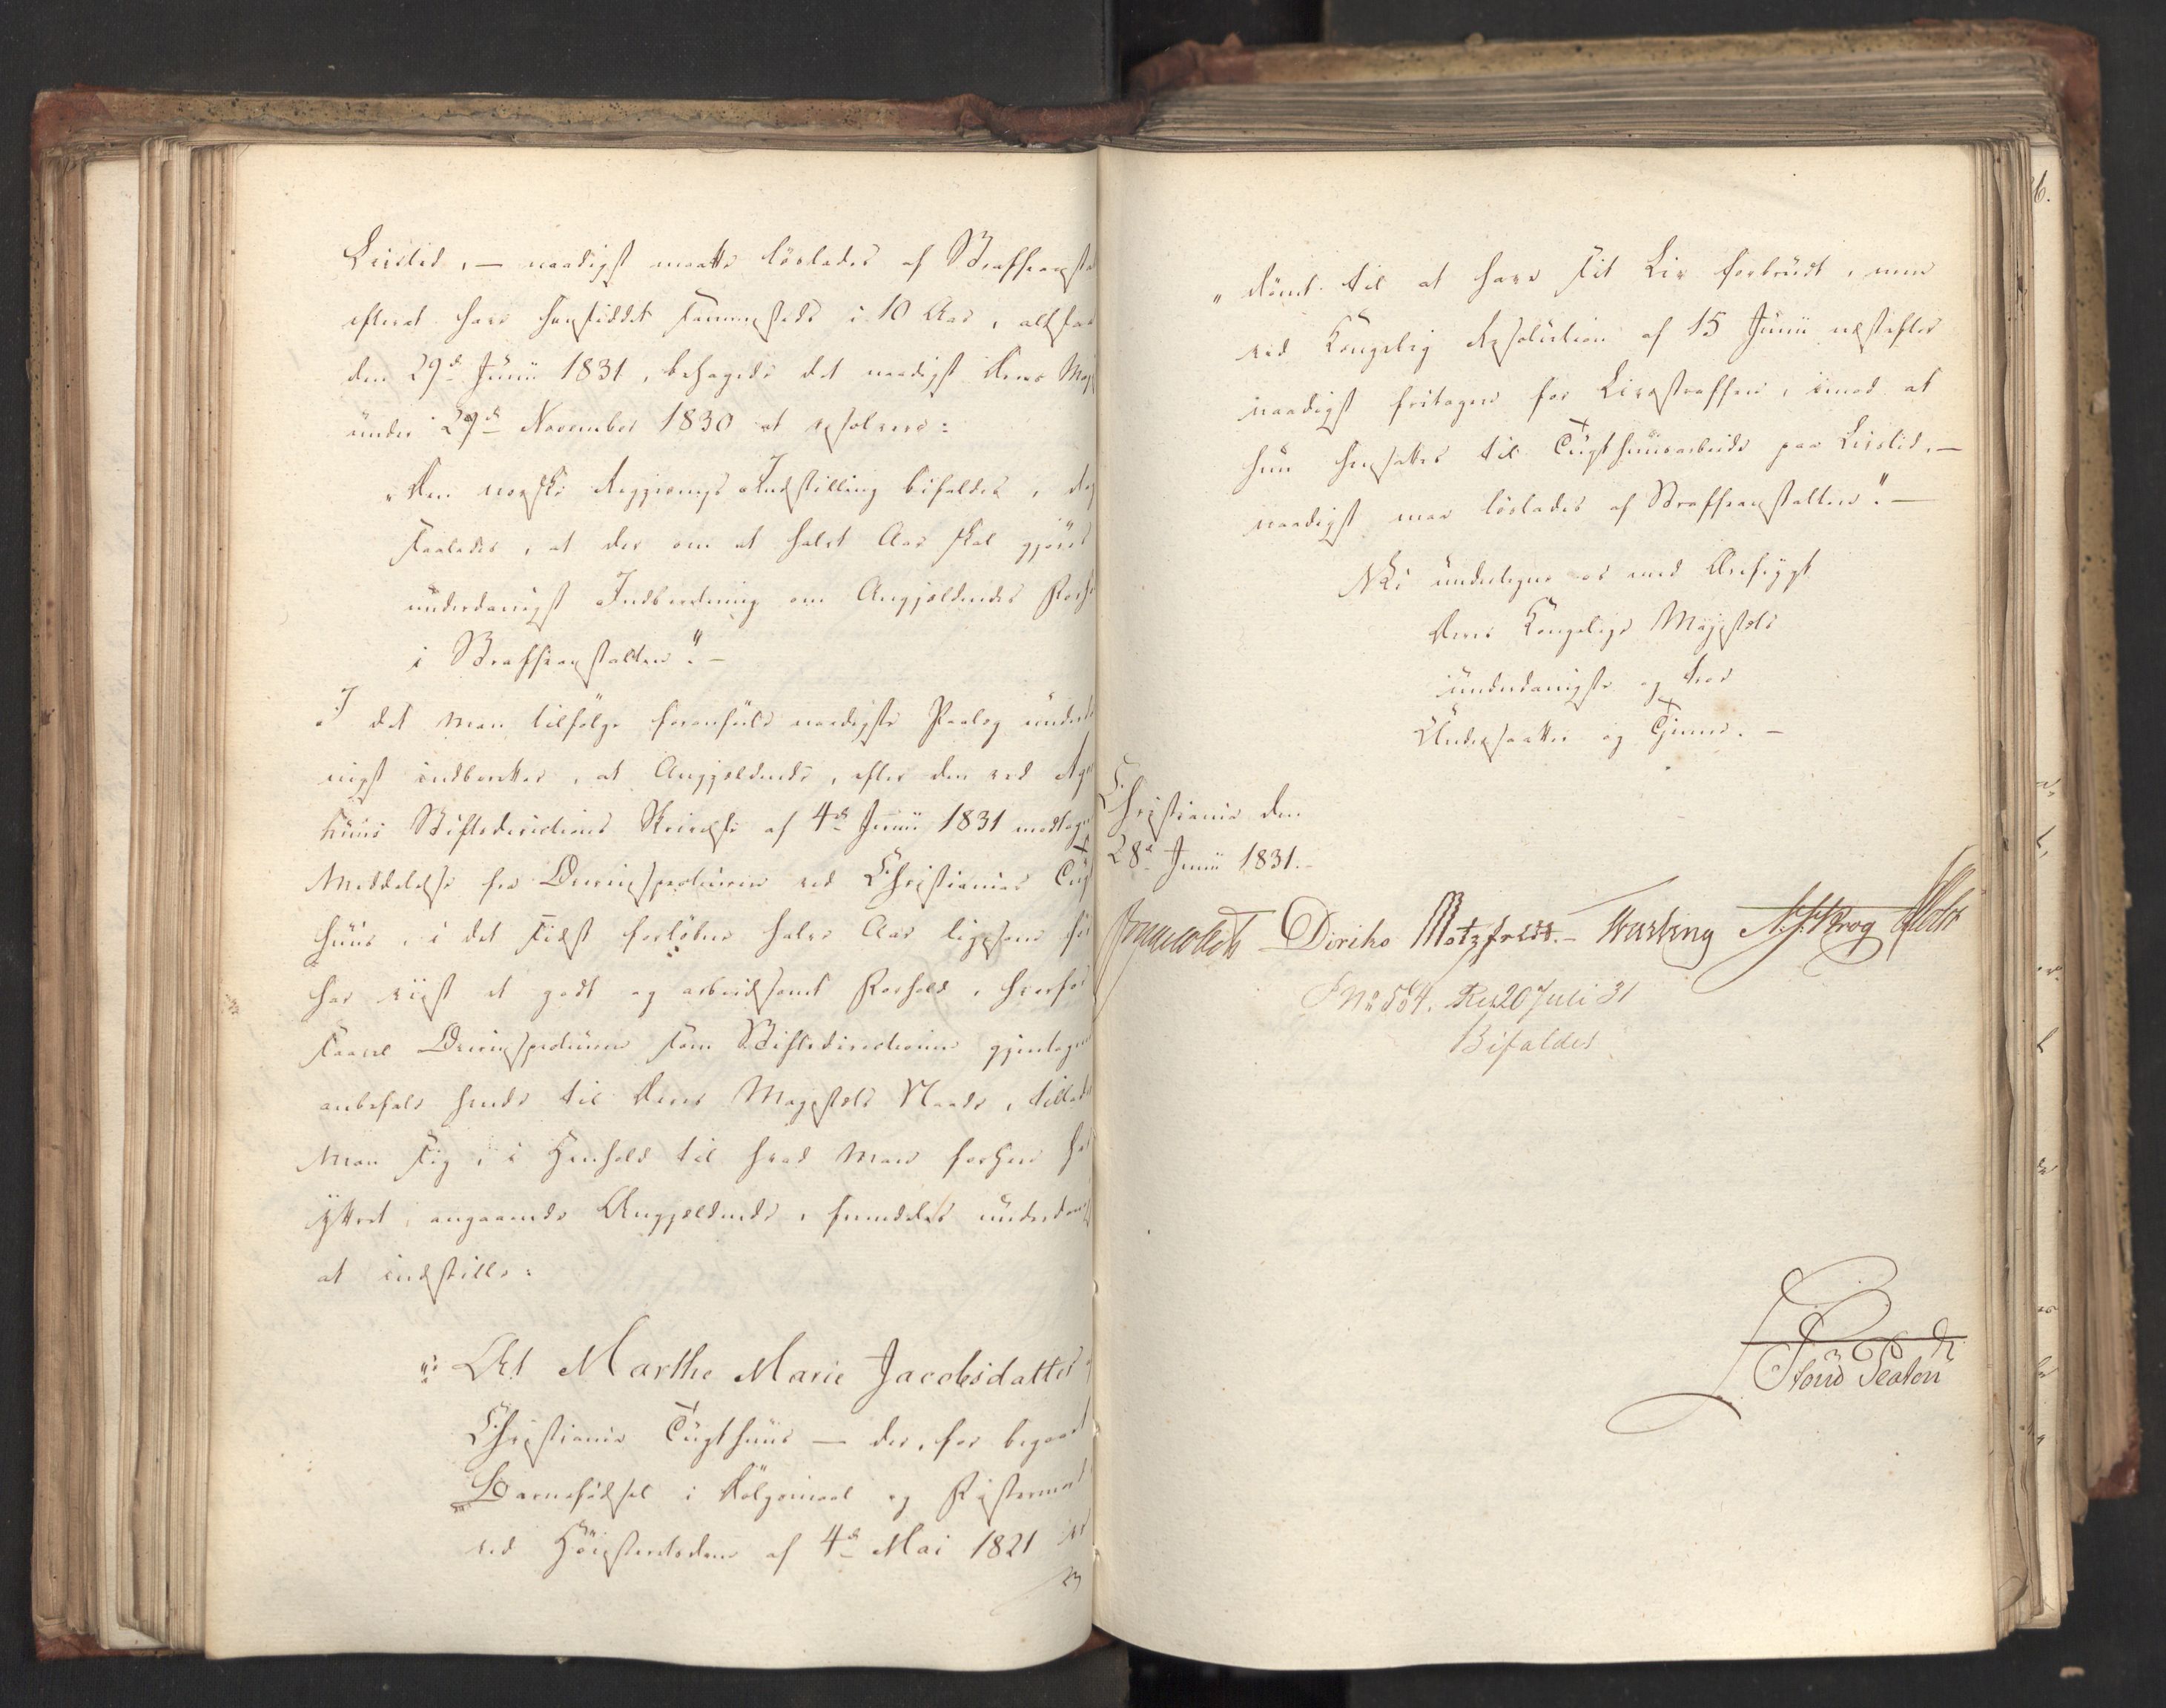 Livstid, — naadigst maatte löslades af Straffeansta
efterat have hensiddet sammesteds i 10 Aar, altsaa
den 29de Junii 1831, behagede det naadigst Deres Maj
under 29de November 1830 at resolvere:
"Den norske Regjerings Indstilling bifaldes, dog
saaledes, at der om et halvt Aar skal gjöres
underdanigst Indberetning om Angjeldendes Forho
i Straffeanstalten". —
I det man tilfölge foranförte naadigste Paalæg underda
nigst indberetter, at Angjeldende, efter den ved Agers
huus Stiftsdirections Skrivelse af 4de Junii 1831 modtagne
Meddelelse fra Overinspecteuren ved Christiania Tugt
huus, i det sidst forlöbne halve Aar ligesom för
har viist et godt og arbeidsomt Forhold, hvorfor
saavel Overinspecteuren som Stiftsdirectionen gjentagen
anbefale hende til Deres Majestæts Naade, tillader
man sig, i Henhold til hvad man forhen har
yttret angaaende Angjeldende, fremdeles underdanigst
at indstille:
"At Marthe Marie Jacobsdatter
Christiania Tugthuus — der, for begaaet
Barnefödsel i Dölgsmaal og
ved Höiesteretsdom af 4de Mai 1821 er
"dömt til at have sit Liv forbrudt, men
ved Kongelig Resolution af 15 Junii næstefter
naadigst fritagen for Livsstraffen, imod at
hun hensattes til Tugthuusarbeide paa Livstid, —
naadigst maa löslades af Straffeanstalten". —
Vi undertegne os med Ærefrygt
Deres Kongelige Majestæts
underdanigste og troe
Undersaatter og Tjenere. —
Christiania den
28de Junii 1831. —
Diriks Motzfeldt. — N. J. Krog
No 564. Res 20 Juli 31
Bifaldes